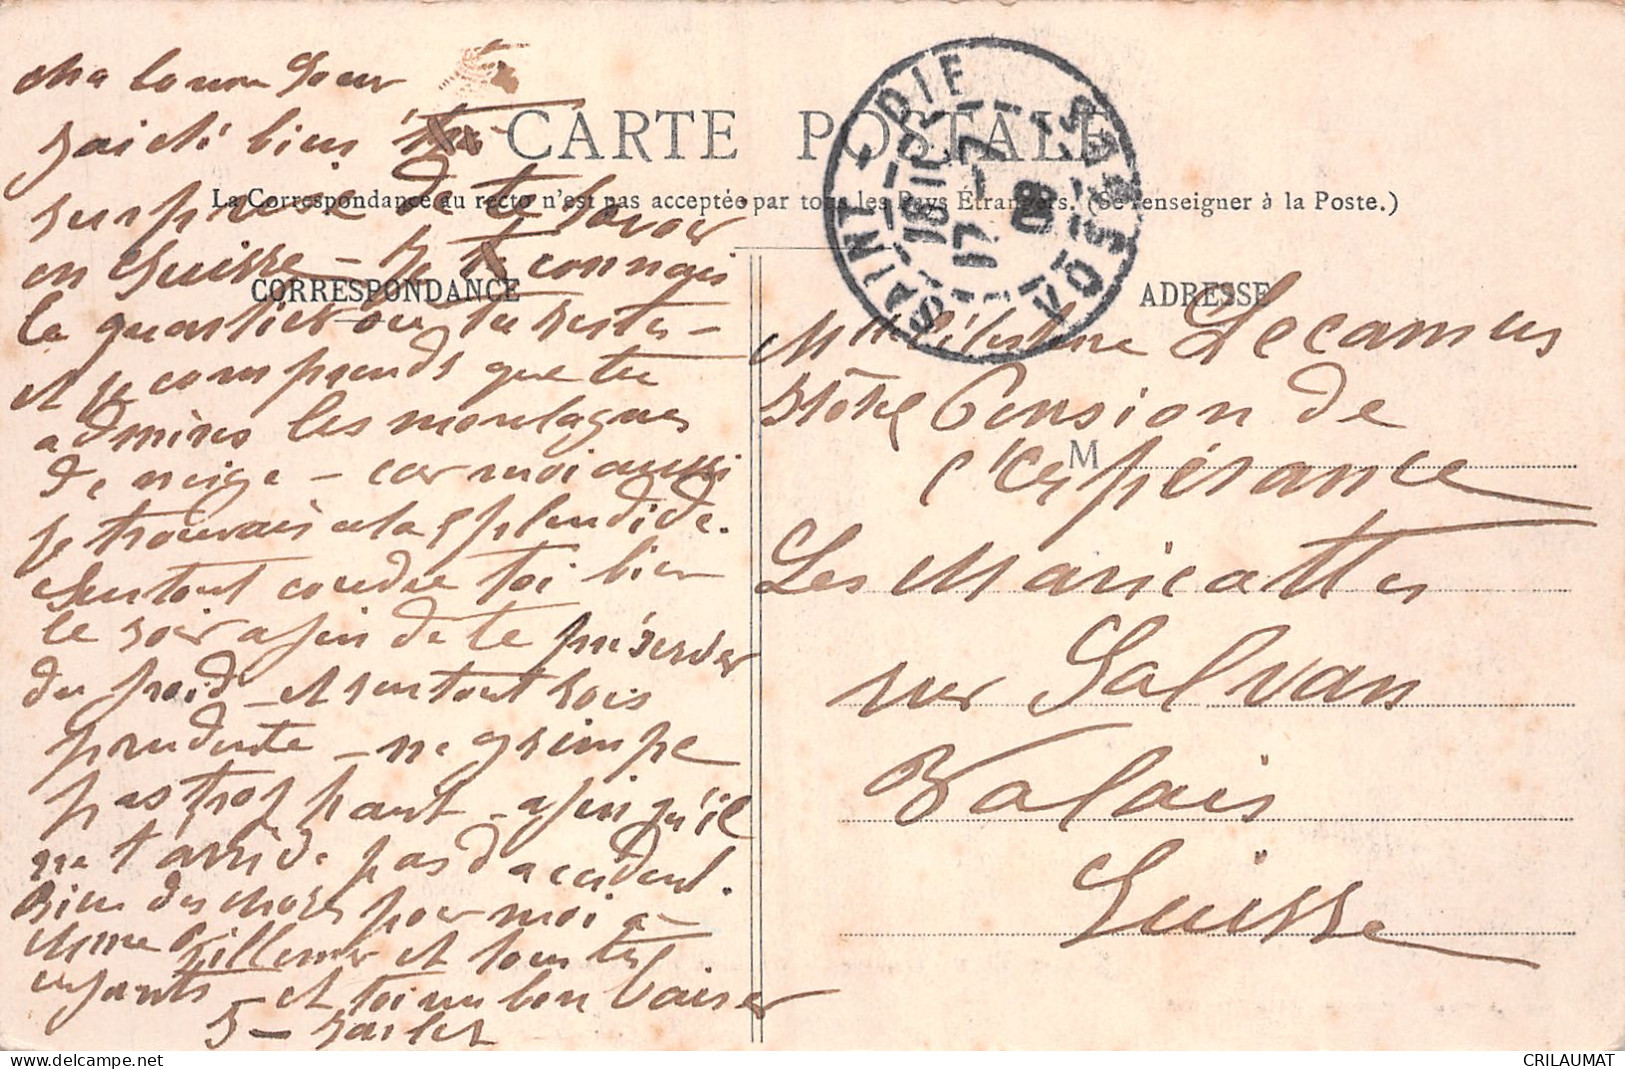 CARTE POSTALE
La Correspondance au recto n'est pas acceptée par tous les Pays Étrangers. (Se renseigner à la Poste.)
CORRESPONDANCE
Ma bonne Soeur
J'ai été bien
surprise de te savoir
en Suisse - Je connais
le quartier où tu restes -
et je comprends que tu
admires les montagnes
de neige - car moi aussi
je trouvais cela splendide.
Surtout couvre toi bien
le soir afin de te préserver
du froid - et surtout sois
prudente - ne grimpe
pas trop haut - afin qu'il
ne t'arrive pas d'accident.
Bien des choses pour moi à
Mme et tous tes
enfants - et toi un bon baiser
ADRESSE
Mlle Célestine Lecamus
Hôtel Pension de
l'Espérance
M
Les Maricottes
sur Salvan
Valais
Suisse
SAINT-DIE VOSGES
18 17-7 09
www.delcampe.net
CRILAUMAT